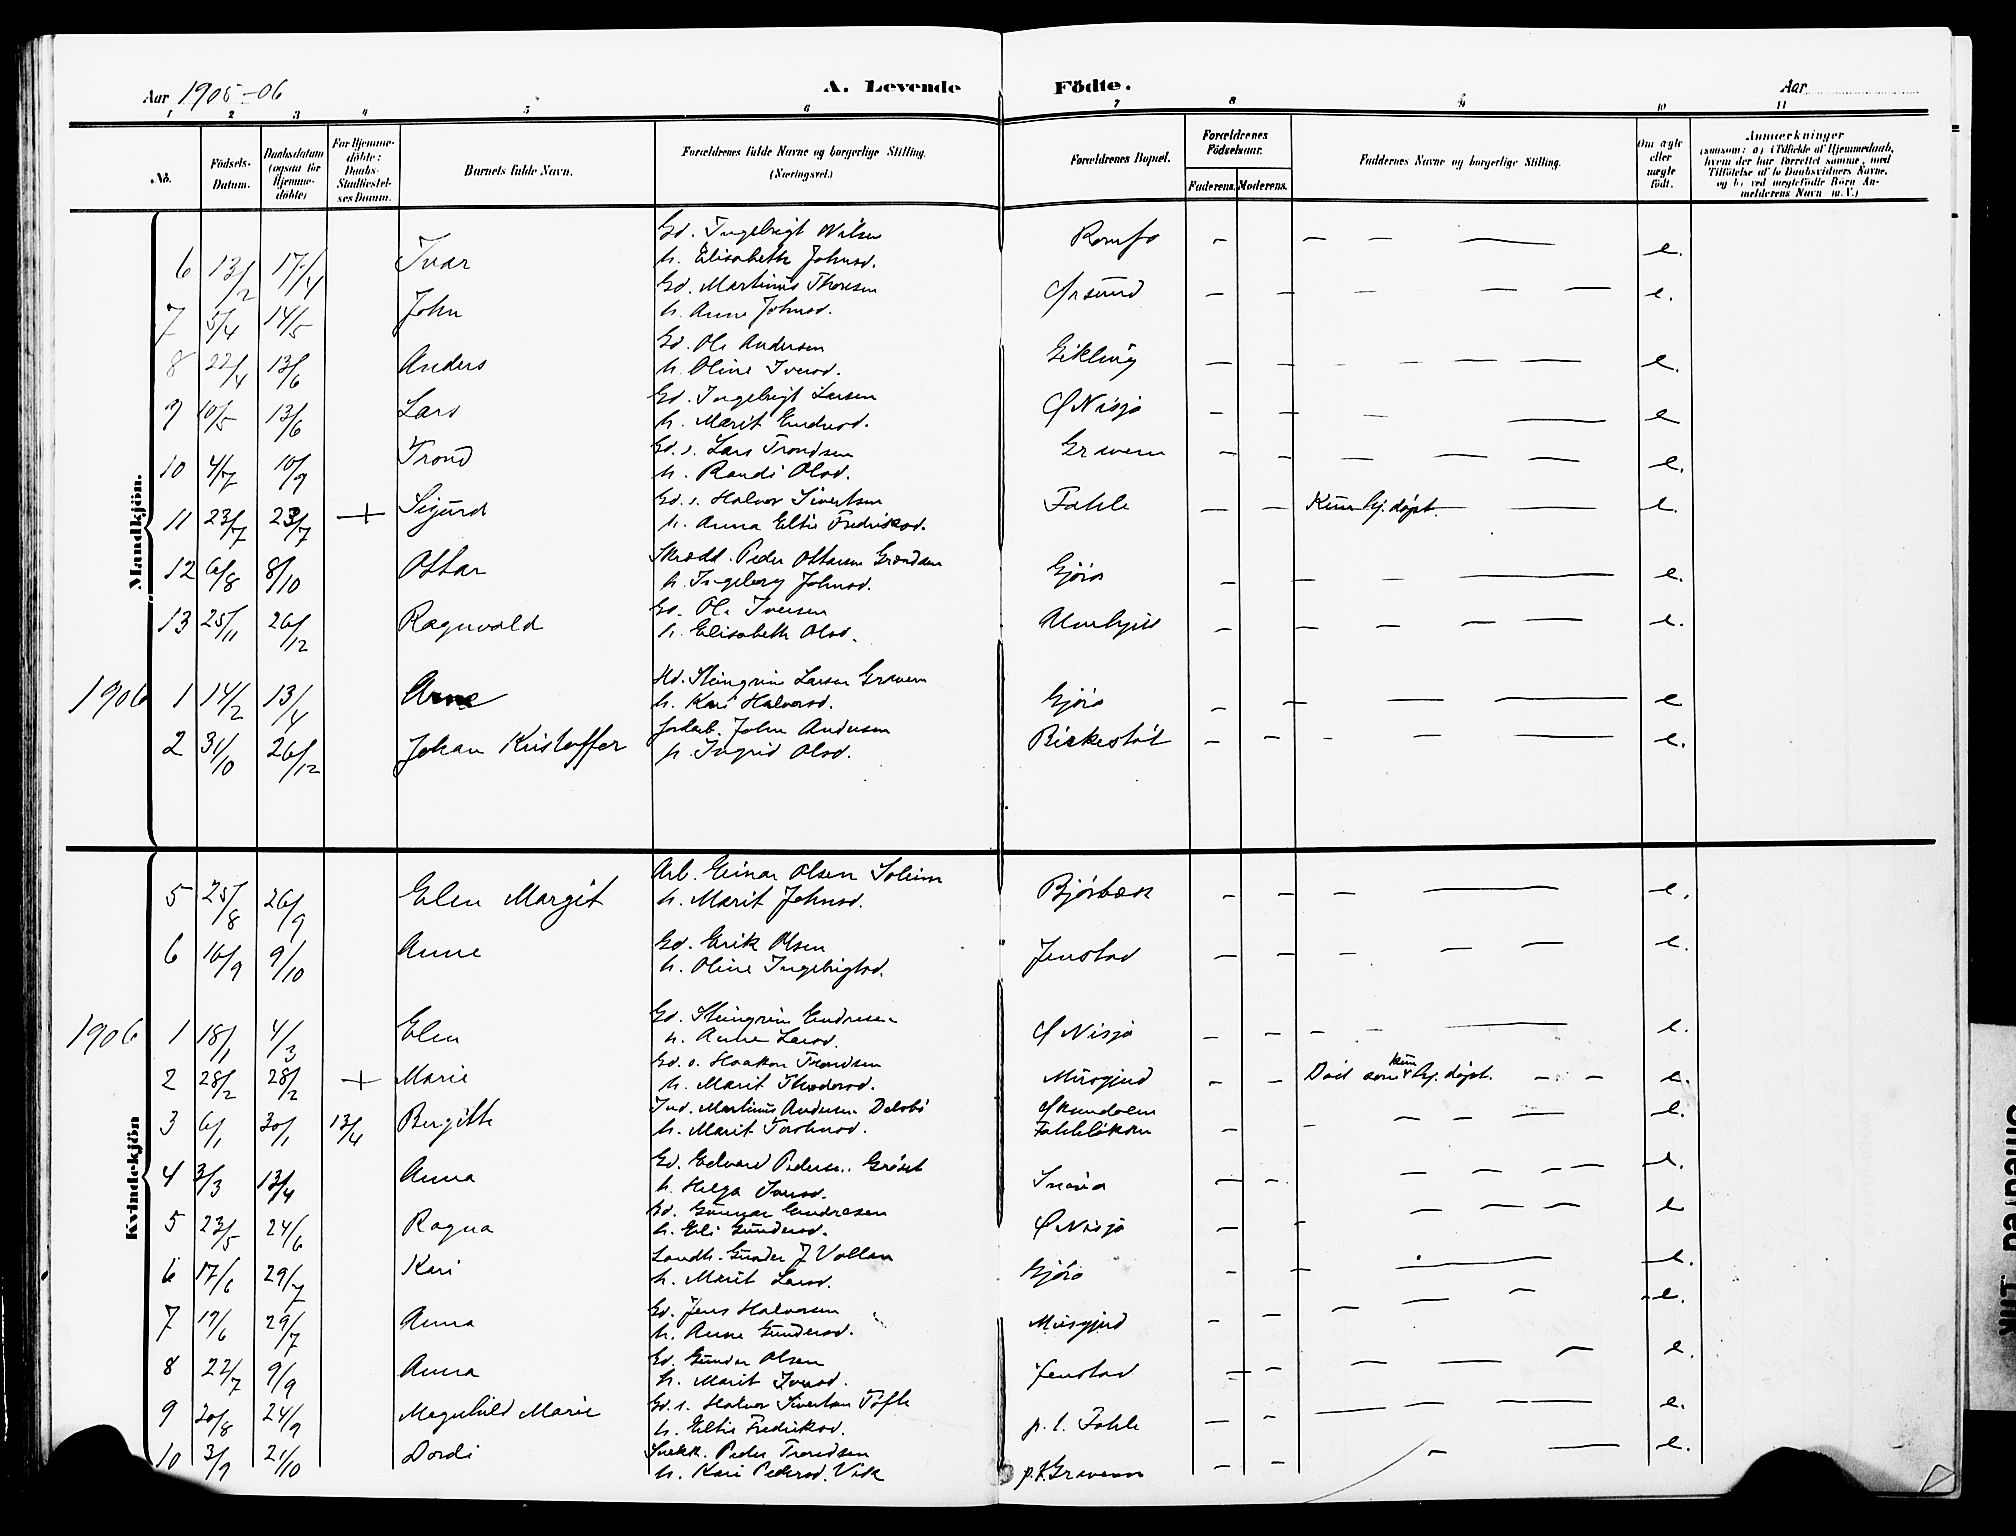 Aar 1905-06 A. Levende Födte. Aar
1 2 3 4 5 6 7 8 9 10 11
No. Födsels-Datum. Daabsdatum (ogsaa for Hjemmedöbte) For Hjemmedöbte: Daabs-Stadfæstelses Datum. Barnets fulde Navn. Forældrenes fulde Navne og borgerlige Stilling. (Næringsvei.) Forældrenes Bopæl. Forældrenes Födselsaar. Faderens. Moderens. Faddernes Navne og borgerlige Stilling. Om ægte eller uægte födt. Anmærkninger
Mandkjön.
6 13/2 17/4 Ivar Gd. Ingebrigt Nilsen Romfo — — — — e.
h. Elisabeth Johnsd.
7 5/4 14/5 John Gd. Martinus Thoresen Ørsund — — — — — e.
h. Anne Johnsd.
8 22/4 13/6 Anders Gd. Ole Andersen Eikling — — - — — — e.
h. Oline Iversd.
9 10/5 13/6 Lars Gd. Ingebrigt Larsen Ø Nisja — — — — e
h. Marit Endresd.
10 4/7 10/9 Trond Gd. s. Lars Trondsen Gravem — — — — — — e.
h. Randi Olsd.
11 23/7 23/7 + Sigurd Gd. s. Halvor Sivertsen Fahle — — Kun hj. døpt. — e.
h. Anna Eltie Fredriksd.
12 6/8 8/10 Ottar Skrædd. Peder Ottarsen Grøndam Gjøra — — — — e.
h. Ingeborg Johnsd.
13 25/11 26/12 Ragnvald Gd. Ole Iversen — — — — — e.
h. Elisabeth Olsd.
1906 1 14/2 13/4 Arne Hd. Steingrim Larsen Gravem Gjøra — — — — e
h. Kari Halvorsd.
2 31/10 26/12 Johan Kristoffer Jordarb. John Andersen — — - — — e.
h. Ingrid Olsd.
Kvindekjön
5 25/8 26/9 Elen Margit Arb. Einar Olsen Solum Bjørbæk — — — — e.
h. Marit Johnsd.
6 16/9 9/10 Anne Gd. Erik Olsen Jenstad — — — — — e.
h. Oline Ingebrigtsd.
1906 1 18/1 4/3 Elen Gd. Steingrim Endresen Ø Nisja — — — — — e.
h. Anne Larsd.
2 28/2 28/2 + Marie Gd. s. Haakon Trondsen Musgjerd — — Død som kun hj. døpt. — — e.
h. Marit Thoresd.
3 6/1 30/1 13/4 Birgitte Ind. Martinus Andersen Dalsbø — - — — — e.
h. Marit
4 3/3 13/4 Anna Gd. Edvard Pedersen Grøset — — — — — — e.
h. Helga Iversd.
5 23/5 24/6 Ragna Gd. Gunnar Endresen Ø Nisja — - — — — e
h. Eli Gundersd.
6 17/6 29/7 Kari Landh. Gunder J Vollan Gjøra — — — e.
h. Marit Larsd.
7 17/6 29/7 Anna Gd. Jens Halvorsen Musgjerd — — — — — e.
h. Anne Gundersd.
8 22/7 9/9 Anna Gd. Gunder Olsen Jenstad — — — — — e.
h. Marit Iversd.
9 20/8 24/9 Magnhild Marie Gd. s. Halvor Sivertsen Tofte p. t. Fahle — — — — — e.
h. Eltie Fredriksd.
10 3/9 21/10 Dordi Snekk. Peder Trondsen p. t. Gravem — — — — e.
h. Kari Pedersd. Vik